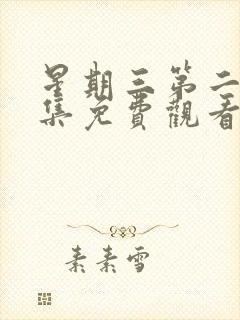 星期三第二
集免費觀看
素素雪